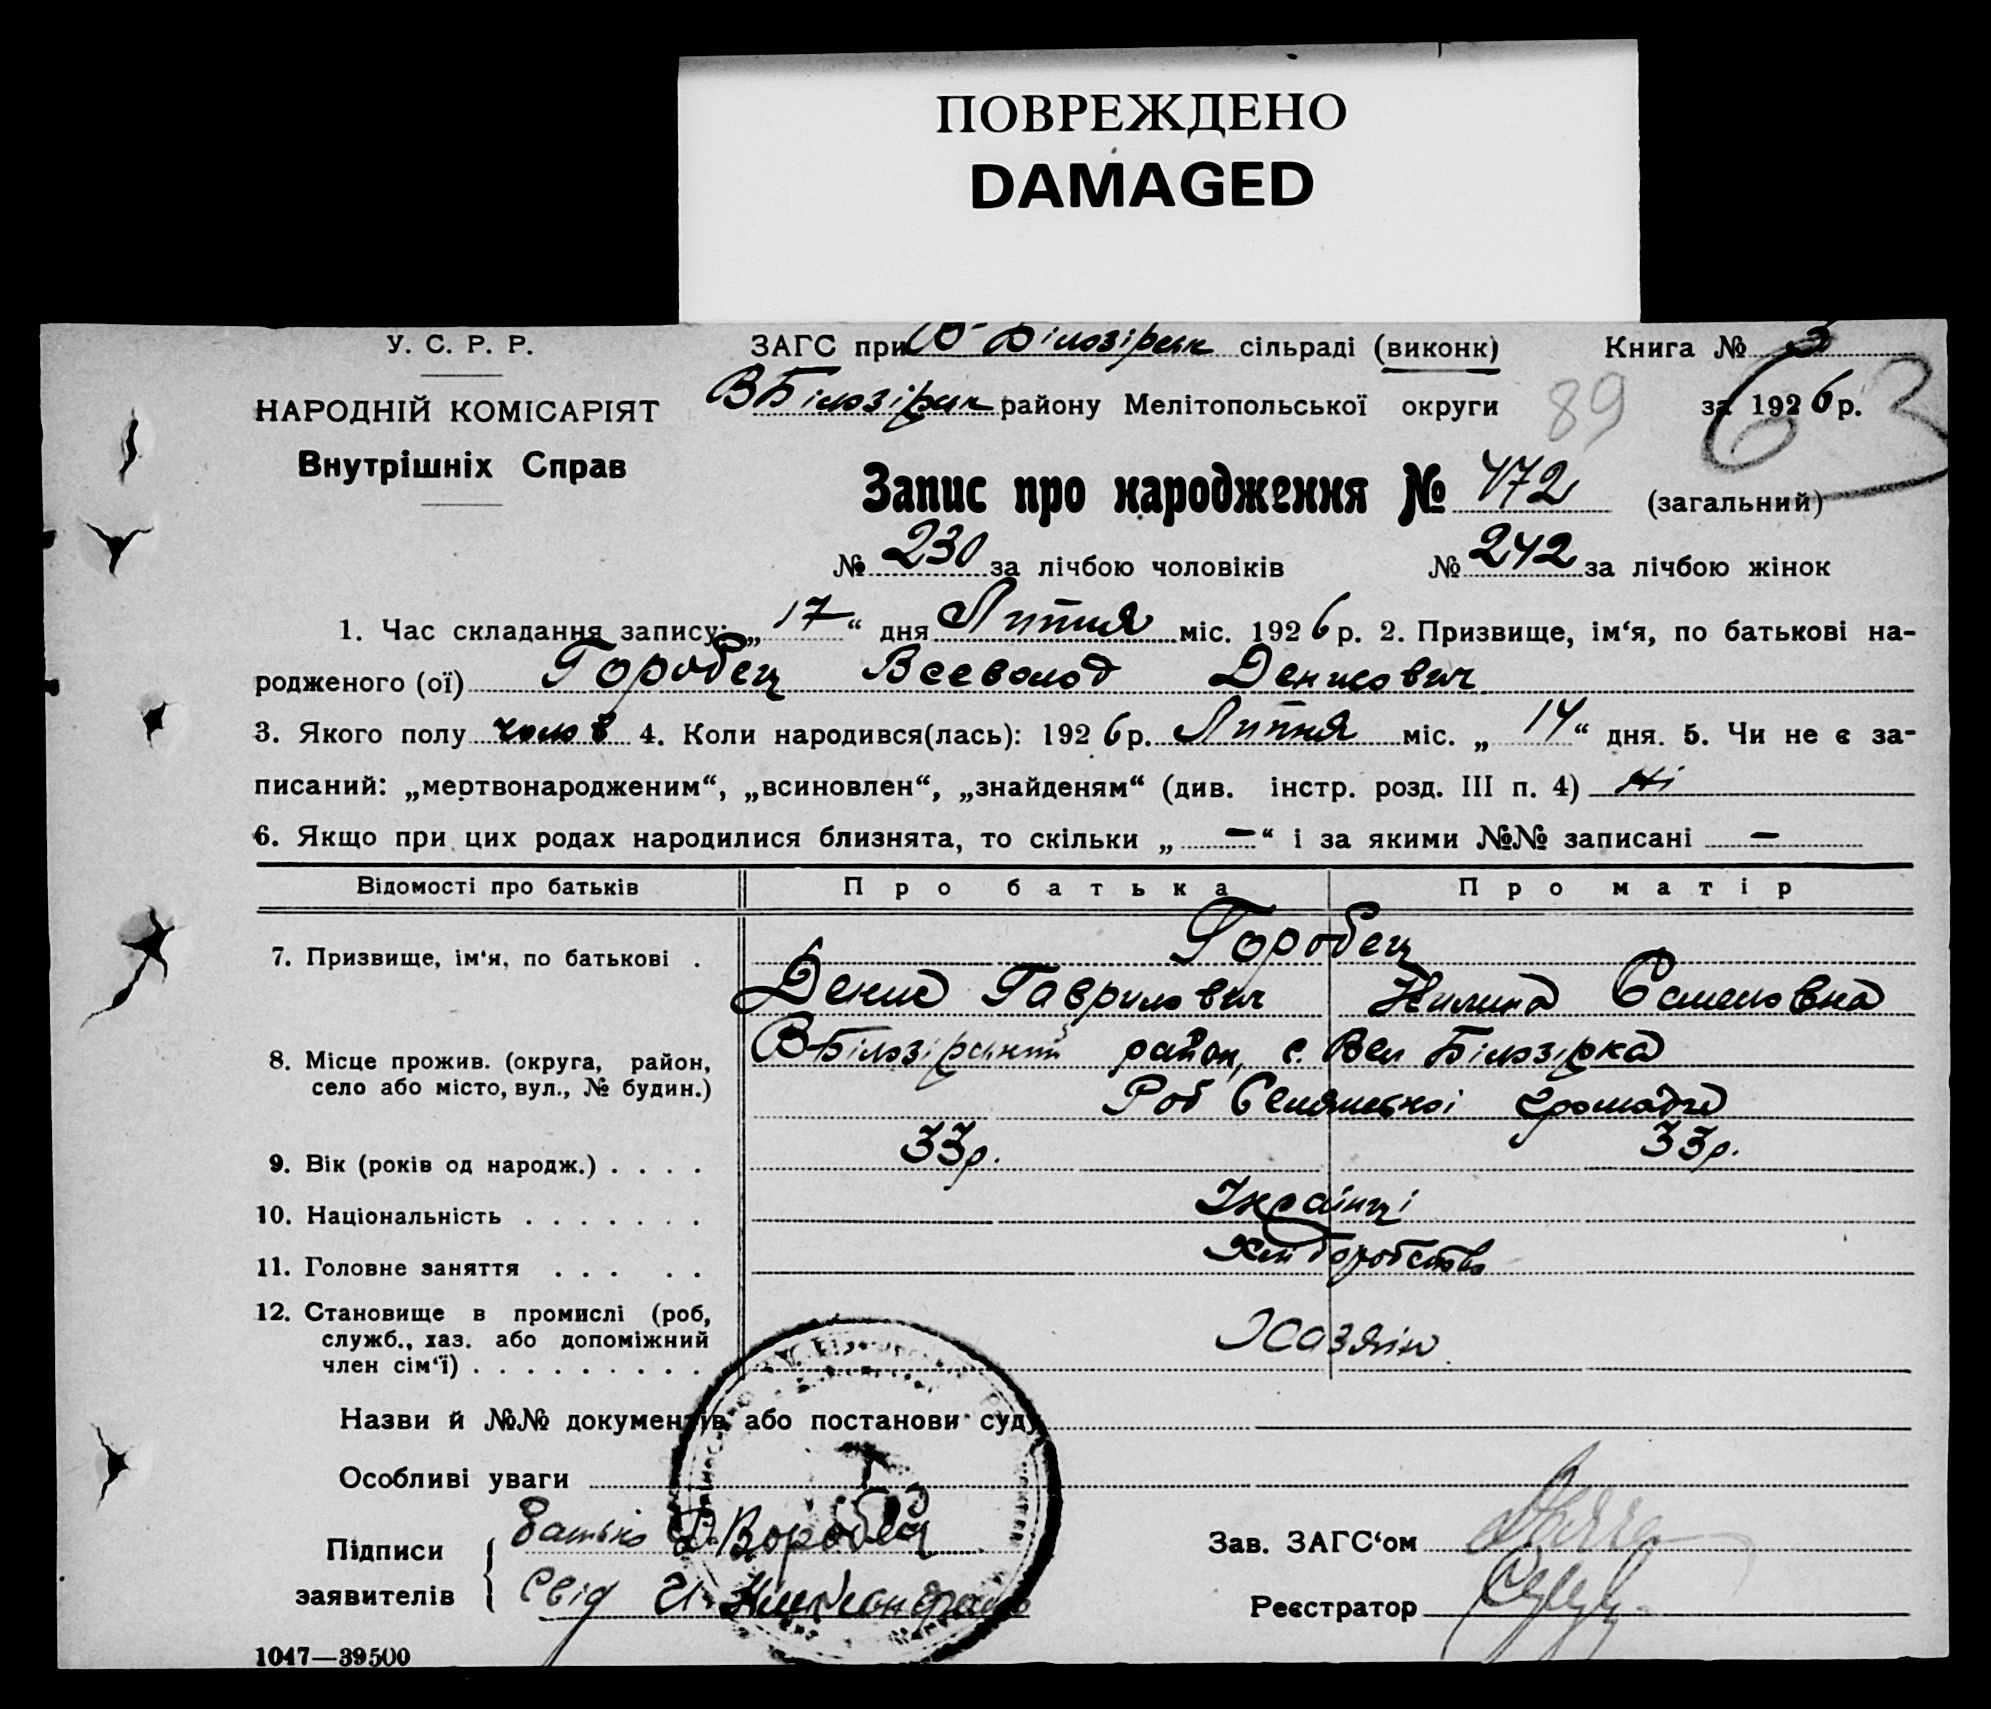 ПОВРЕЖДЕНО
DAMAGED
У. С. Р. Р.
НАРОДНІЙ КОМІСАРІЯТ
Внутрішніх Справ
ЗАГС при В-Білозірськ сільраді (виконк)
ВБілозірськ району Мелітопольської округи
Книга № 3
за 1926 р.
89
63
Запис про народження № 472 (загальний)
№ 230 за лічбою чоловіків № 242 за лічбою жінок
1. Час складання запису: „ 17 “ дня Липня міс. 1926 р. 2. Призвище, ім‘я, по батькові на-
родженого (ої) Горобец Всеволод Денисович
3. Якого полу чолов 4. Коли народився(лась): 1926 р. Липня міс. „ 14 “ дня. 5. Чи не є за-
писаний: „мертвонародженим“, „всиновлен“, „знайденям“ (див. інстр. розд. III п. 4) Ні
6. Якщо при цих родах народилися близнята, то скільки „ — “ і за якими №№ записані —
Відомості про батьків Про батька Про матір
7. Призвище, ім‘я, по батькові . Горобец
Денис Гаврилович Килина Семеновна
8. Місце прожив. (округа, район, ВБілозірський район, с. Вел Білозірка
село або місто, вул., № будин.) Роб громади
9. Вік (років од народж.) . . . . 33р. 33р.
10. Національність . . . . . . . Українці
11. Головне заняття . . . . . Хліборобство
12. Становище в промислі (роб,
служб., хаз. або допоміжний Хазяін
член сім‘ї) . . . . . . . . .
Назви й №№ документів або постанови суду
Особливі уваги
Підписи
заявителів
Батько Д. Горобец
Свід И.
Зав. ЗАГС‘ом
Реєстратор
1047—39500